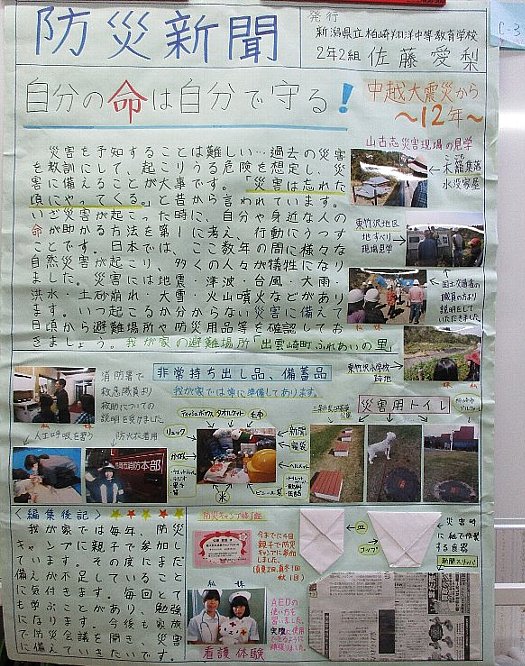 防災新聞
発行
新潟県立柏崎翔洋中等教育学校
2年2組 佐藤 愛梨
自分の命は自分で守る!
中越大震災から
〜12年〜
災害を予知することは難しい…過去の災害
を教訓にして、起こりうる危険を想定し、災
害に備えることが大事です。「災害は忘れた
頃にやってくる。」と昔から言われています。
いざ災害が起こった時に、自分や身近な人の
命が助かる方法を第1に考え、行動にうつす
ことです。日本では、ここ数年の間に様々な
自然災害が起こり、多くの人々が犠牲になり
ました。災害には地震・津波・台風・大雨・
洪水・土砂崩れ・大雪・火山噴火などがあり
ます。いつ起こるか分からない災害に備えて
日頃から避難場所や防災用品等を確認してお
きましょう。我が家の避難場所「出雲崎町ふれあいの里」
山古志災害現場の見学
木籠集落
水没家屋
東竹沢地区
地すべり
現場見学
国土交通省の
職員の方より
説明をして
いただきました
東竹沢小学校
跡地
消防署で
救急隊員より
救助についての
説明を受けました
人工呼吸を習う
防火衣着用
非常持ち出し品、備蓄品
我が家では常に準備してあります。
ティッシュボックス
タオルケット
毛布
リュック
かさ
新聞
寝袋
ヘルメット
水
災害用トイレ
<編集後記>
我が家では毎年、防災
キャンプに親子で参加し
ています。その度にまだ
備えが不足していること
に気付きます。毎回とて
も学ぶことがあり、勉強
になります。今後も家族
で防災会議を開き、災害
に備えていきたいです。
防災キャンプ修了証
今までに4回
親子で防災
キャンプに参加し
ました。
私
妹
看護体験
AEDの
使い方を
習いました。
皿
コップ
災害時
に紙で作製
する食器
新聞スリッパ